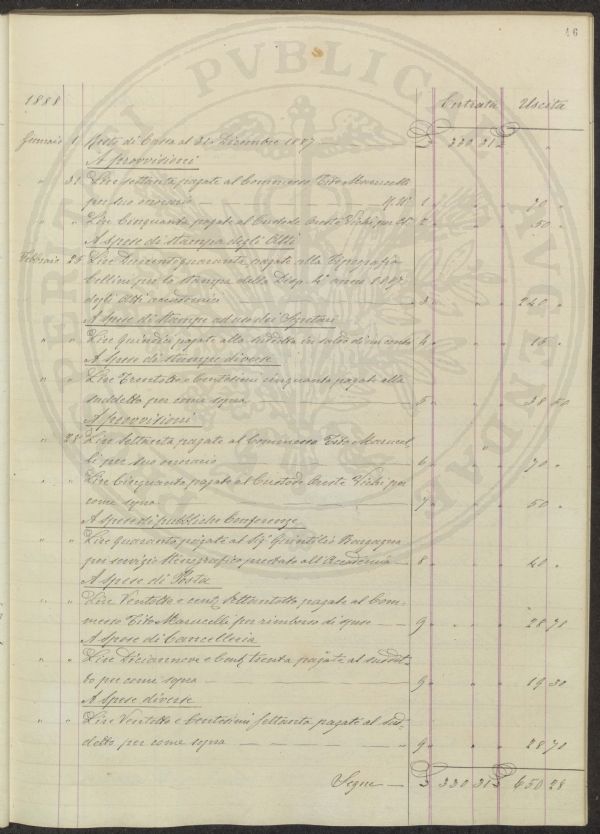 46
1888 Entrata Uscita
Gennaio 1 Resto di Cassa al 31 Dicembre 1887 — £ 330 31 £ "
A provvisioni
" 31 Lire settanta pagate al Commesso Tito Marucelli
per suo onorario — 1 " " " 70 "
" " Lire Cinquanta pagate al Custode Oreste Vichi per 2 " " " 50 "
A spese di stampa degli Atti
Febbraio 28 Lire Duecentoquaranta pagate alla Tipografia
Cellini per la stampa della Disp. 4ª anno 1887
degli Atti accademici — 3 " " " 240 "
A Spese di Stampe ad uso dei
" " Lire Quindici pagate alla suddetta in saldo di un conto 4 " " " 15 "
A Spese di stampe diverse
" " Lire Trentotto e Centesimi cinquanta pagate alla
suddetta per come sopra — 5 " " " 38 50
A provvisioni
" 28 Lire Settanta pagate al Commesso Tito Marucel-
li per suo onorario — 6 " " " 70 "
" " Lire Cinquanta pagate al Custode Oreste Vichi per
come sopra — 7 " " " 50 "
A Spese di pubbliche Conferenze
" " Lire Quaranta pagate al Sig. Quintilio Bargagna
per servizio stenografico prestato all'Accademia — 8 " " " 40 "
A Spese di Posta
" " Lire Ventotto e cent. settantotto pagate al Com-
messo Tito Marucelli per rimborso di spese — 9 " " " 28 78
A Spese di Cancelleria
" " Lire Diciannove e Cent. trenta pagate al suddet-
to per come sopra — 9 " " " 19 30
A Spese diverse
" " Lire Ventotto e Centesimi settanta pagate al sud-
detto per come sopra — " 9 " " " 28 70
Segue — £ 330 31 £ 650 28
PVBLICAE